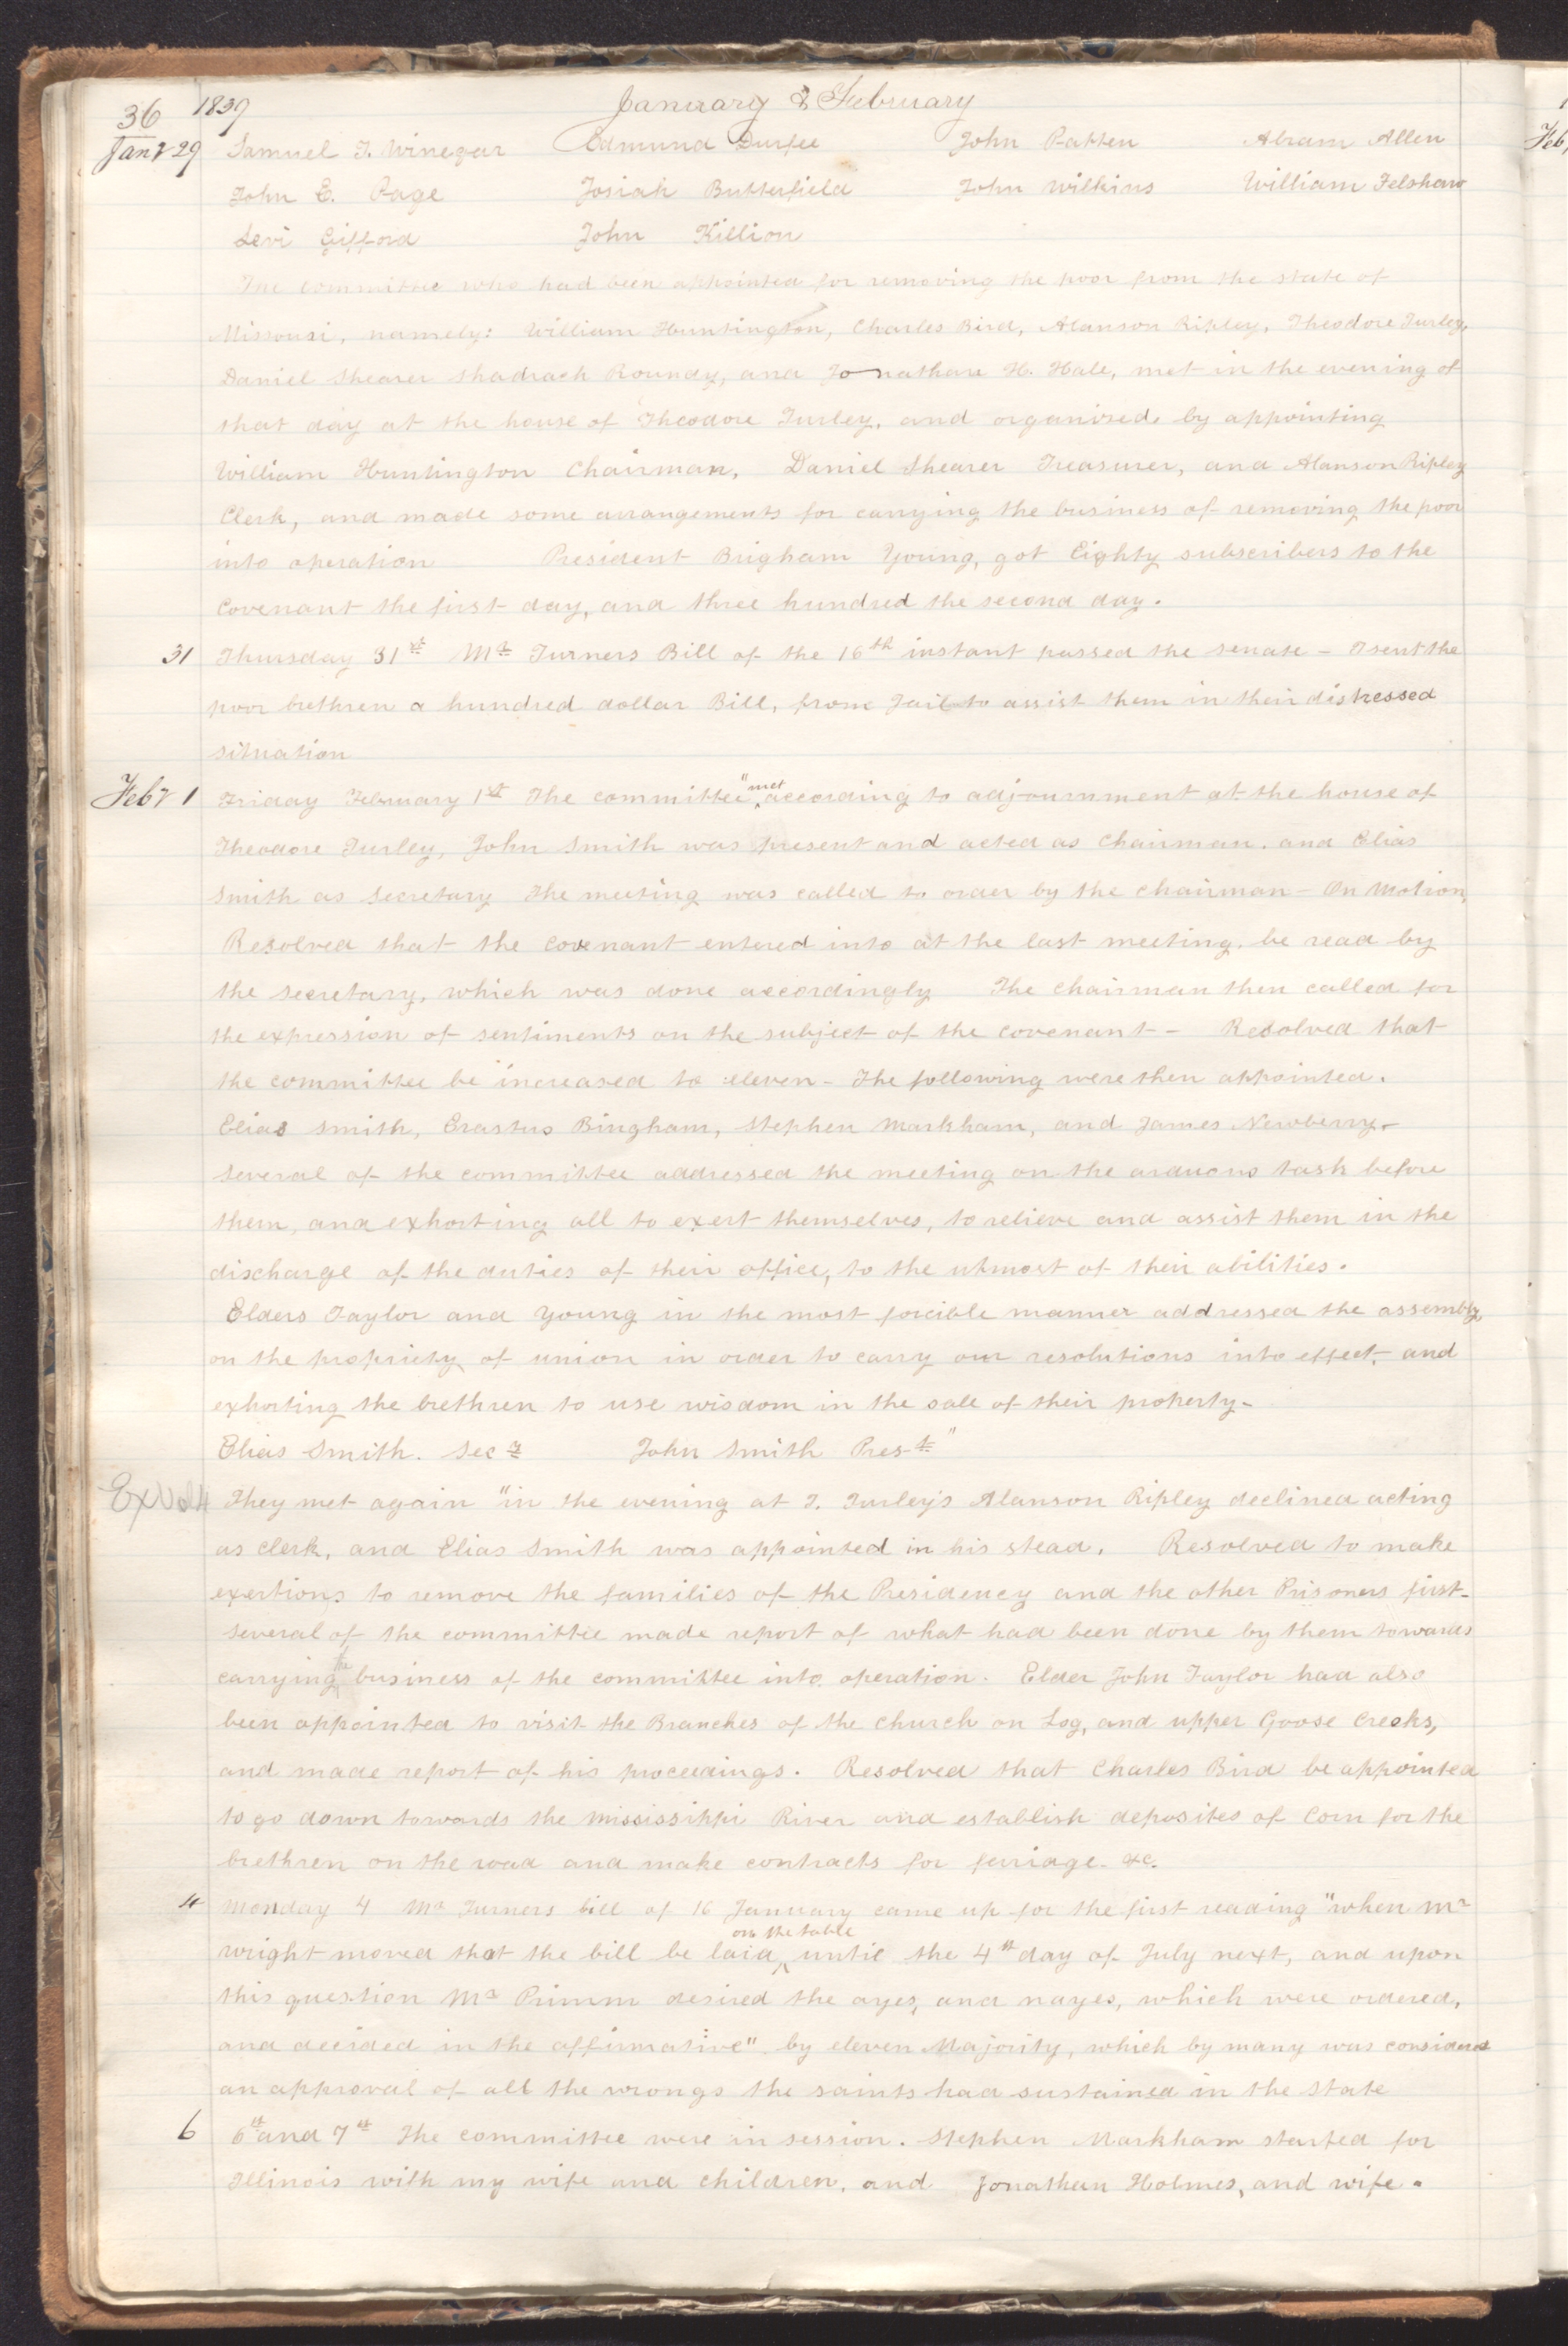 36 1839 January & February
Jany 29 Samuel T. Winegar Edmund Durfee John Patten Abram Allen
John E. Page Josiah Butterfield John Wilkins William Felshaw
Levi Gifford John Killion
The committee who had been appointed for removing the poor from the state of
Missouri, namely: William Huntington, Charles Bird, Alanson Ripley, Theodore Turley,
Daniel Shearer Shadrach Roundy, and Jonathan H. Hale, met in the evening of
that day at the house of Theodore Turley, and organized, by appointing
William Huntington Chairman, Daniel Shearer Treasurer, and Alanson Ripley
Clerk, and made some arrangements for carrying the business of removing the poor
into operation President Brigham Young, got Eighty subscribers to the
Covenant the first day, and three hundred the second day.
31 Thursday 31st Mr Turners Bill of the 16th instant passed the senate - I sent the
poor brethren a hundred dollar Bill, from Jail to assist them in their distressed
situation
Feby 1 Friday February 1st The committee "met according to adjournment at the house of
Theodore Turley, John Smith was present and acted as Chairman. and Elias
Smith as Secretary The meeting was called to order by the chairman - On Motion,
Resolved that the covenant entered into at the last meeting, be read by
the secretary, which was done accordingly The chairman then called for
the expression of sentiments on the subject of the covenant - Resolved that
the committee be increased to eleven - The following were then appointed.
Elias Smith, Erastus Bingham, Stephen Markham, and James Newberry -
Several of the committee addressed the meeting on the arduous task before
them, and exhorting all to exert themselves, to relieve and assist them in the
discharge of the duties of their office, to the utmost of their abilities.
Elders Taylor and Young in the most forcible manner addressed the assembly,
on the propriety of union in order to carry our resolutions into effect, and
exhorting the brethren to use wisdom in the sale of their property -
Elias Smith. Secy John Smith Prest"
They met again "in the evening at T. Turley's Alanson Ripley declined acting
as clerk, and Elias Smith was appointed in his stead. Resolved to make
exertions to remove the families of the Presidency and the other Prisoners first -
Several of the committee made report of what had been done by them towards
carrying the business of the committee into operation. Elder John Taylor had also
been appointed to visit the Branches of the church on Log, and upper Goose Creeks,
and made report of his proceedings. Resolved that Charles Bird be appointed
to go down towards the Mississippi River and establish deposites of Corn for the
brethren on the road and make contracts for ferriage &c.
4 Monday 4 Mr Turners bill of 16 January came up for the first reading "when Mr
Wright moved that the bill be laid on the table until the 4th day of July next, and upon
this question Mr Primm desired the ayes, and nayes, which were ordered,
and decided in the affirmative" by eleven Majority, which by many was considered
an approval of all the wrongs the saints had sustained in the State
6 6th and 7th The committee were in session. Stephen Markham started for
Illinois with my wife and children, and Jonathan Holmes, and wife.
Feb,